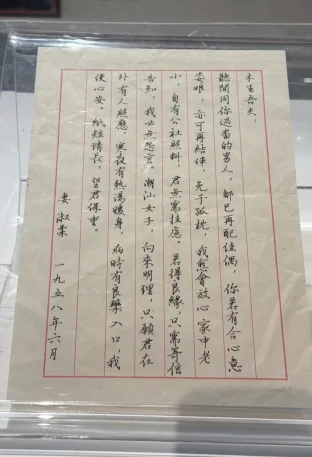 木生吾夫，
聽聞同你過番的男人，都已再配佳偶，你若有合心意
姿娘，亦可再結伴，免于孤枕，我愈會放心家中老
小，自有公社照料，君無需挂慮。若得良緣，只需寄信
告知，我必無怨言。潮汕女子，向來明理，只願君在
外有人照應，寒夜有熱湯暖身，病時有良藥入口，我
便心安。紙短情長，望君保重。
妻 淑柔 一九五八年六月